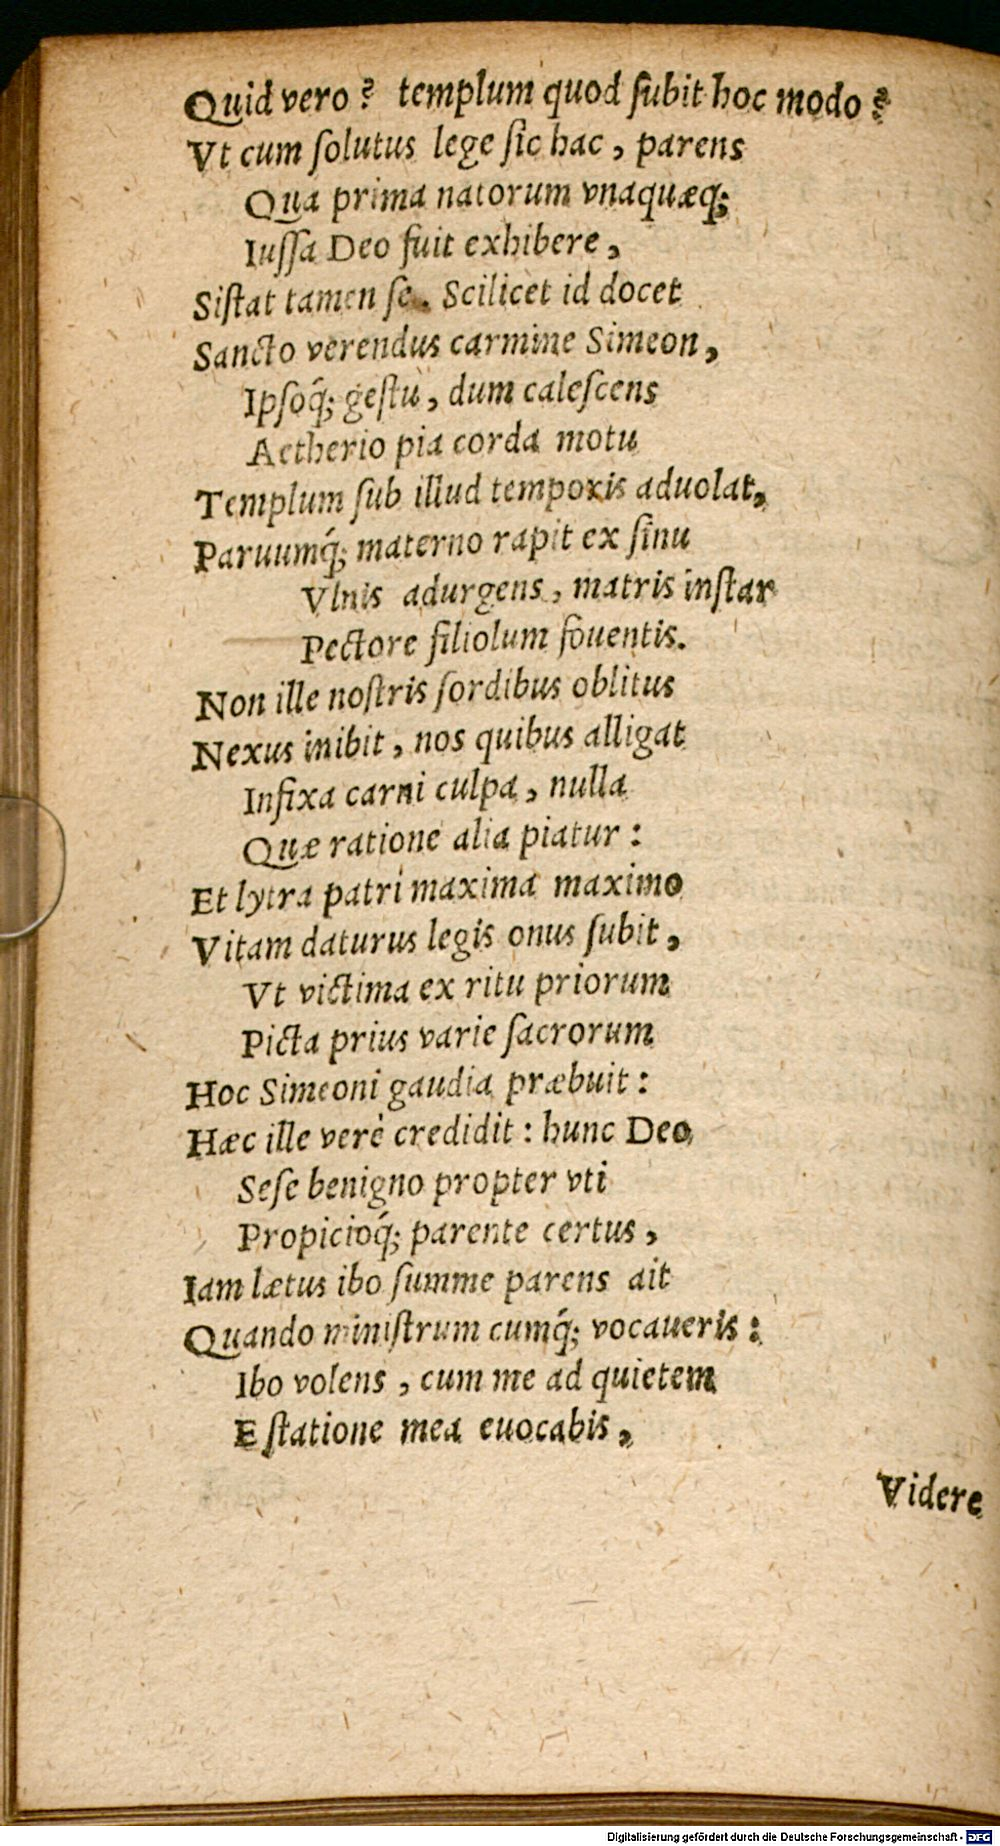 Quid vero? templum quod ſubit hoc modo?
Vt cum ſolutus lege ſic hac, parens
Qua prima natorum vnaquæq;
Iuſſa Deo fuit exhibere,
Siſtat tamen ſe. Scilicet id docet
Sancto verendus carmine Simeon,
Ipſoq́; geſtu, dum caleſcens
Aetherio pia corda motu
Templum ſub illud temporis aduolat,
Paruumq́; materno rapit ex ſinu
Vlnis adurgens, matris inſtar
Pectore filiolum fouentis.
Non ille noſtris ſordibus oblitus
Nexus inibit, nos quibus alligat
Infixa carni culpa, nulla
Quæ ratione alia piatur:
Et lytra patri maxima maximo
Vitam daturus legis onus ſubit,
Vt victima ex ritu priorum
Picta prius varie ſacrorum
Hoc Simeoni gaudia præbuit:
Hæc ille verè credidit: hunc Deo
Seſe benigno propter vti
Propicioq́; parente certus,
Iam lætus ibo ſumme parens ait
Quando miniſtrum cumq́; vocaueris:
Ibo volens, cum me ad quietem
E ſtatione mea euocabis,
Videre
Digitalisierung gefördert durch die Deutsche Forschungsgemeinschaft - DFG